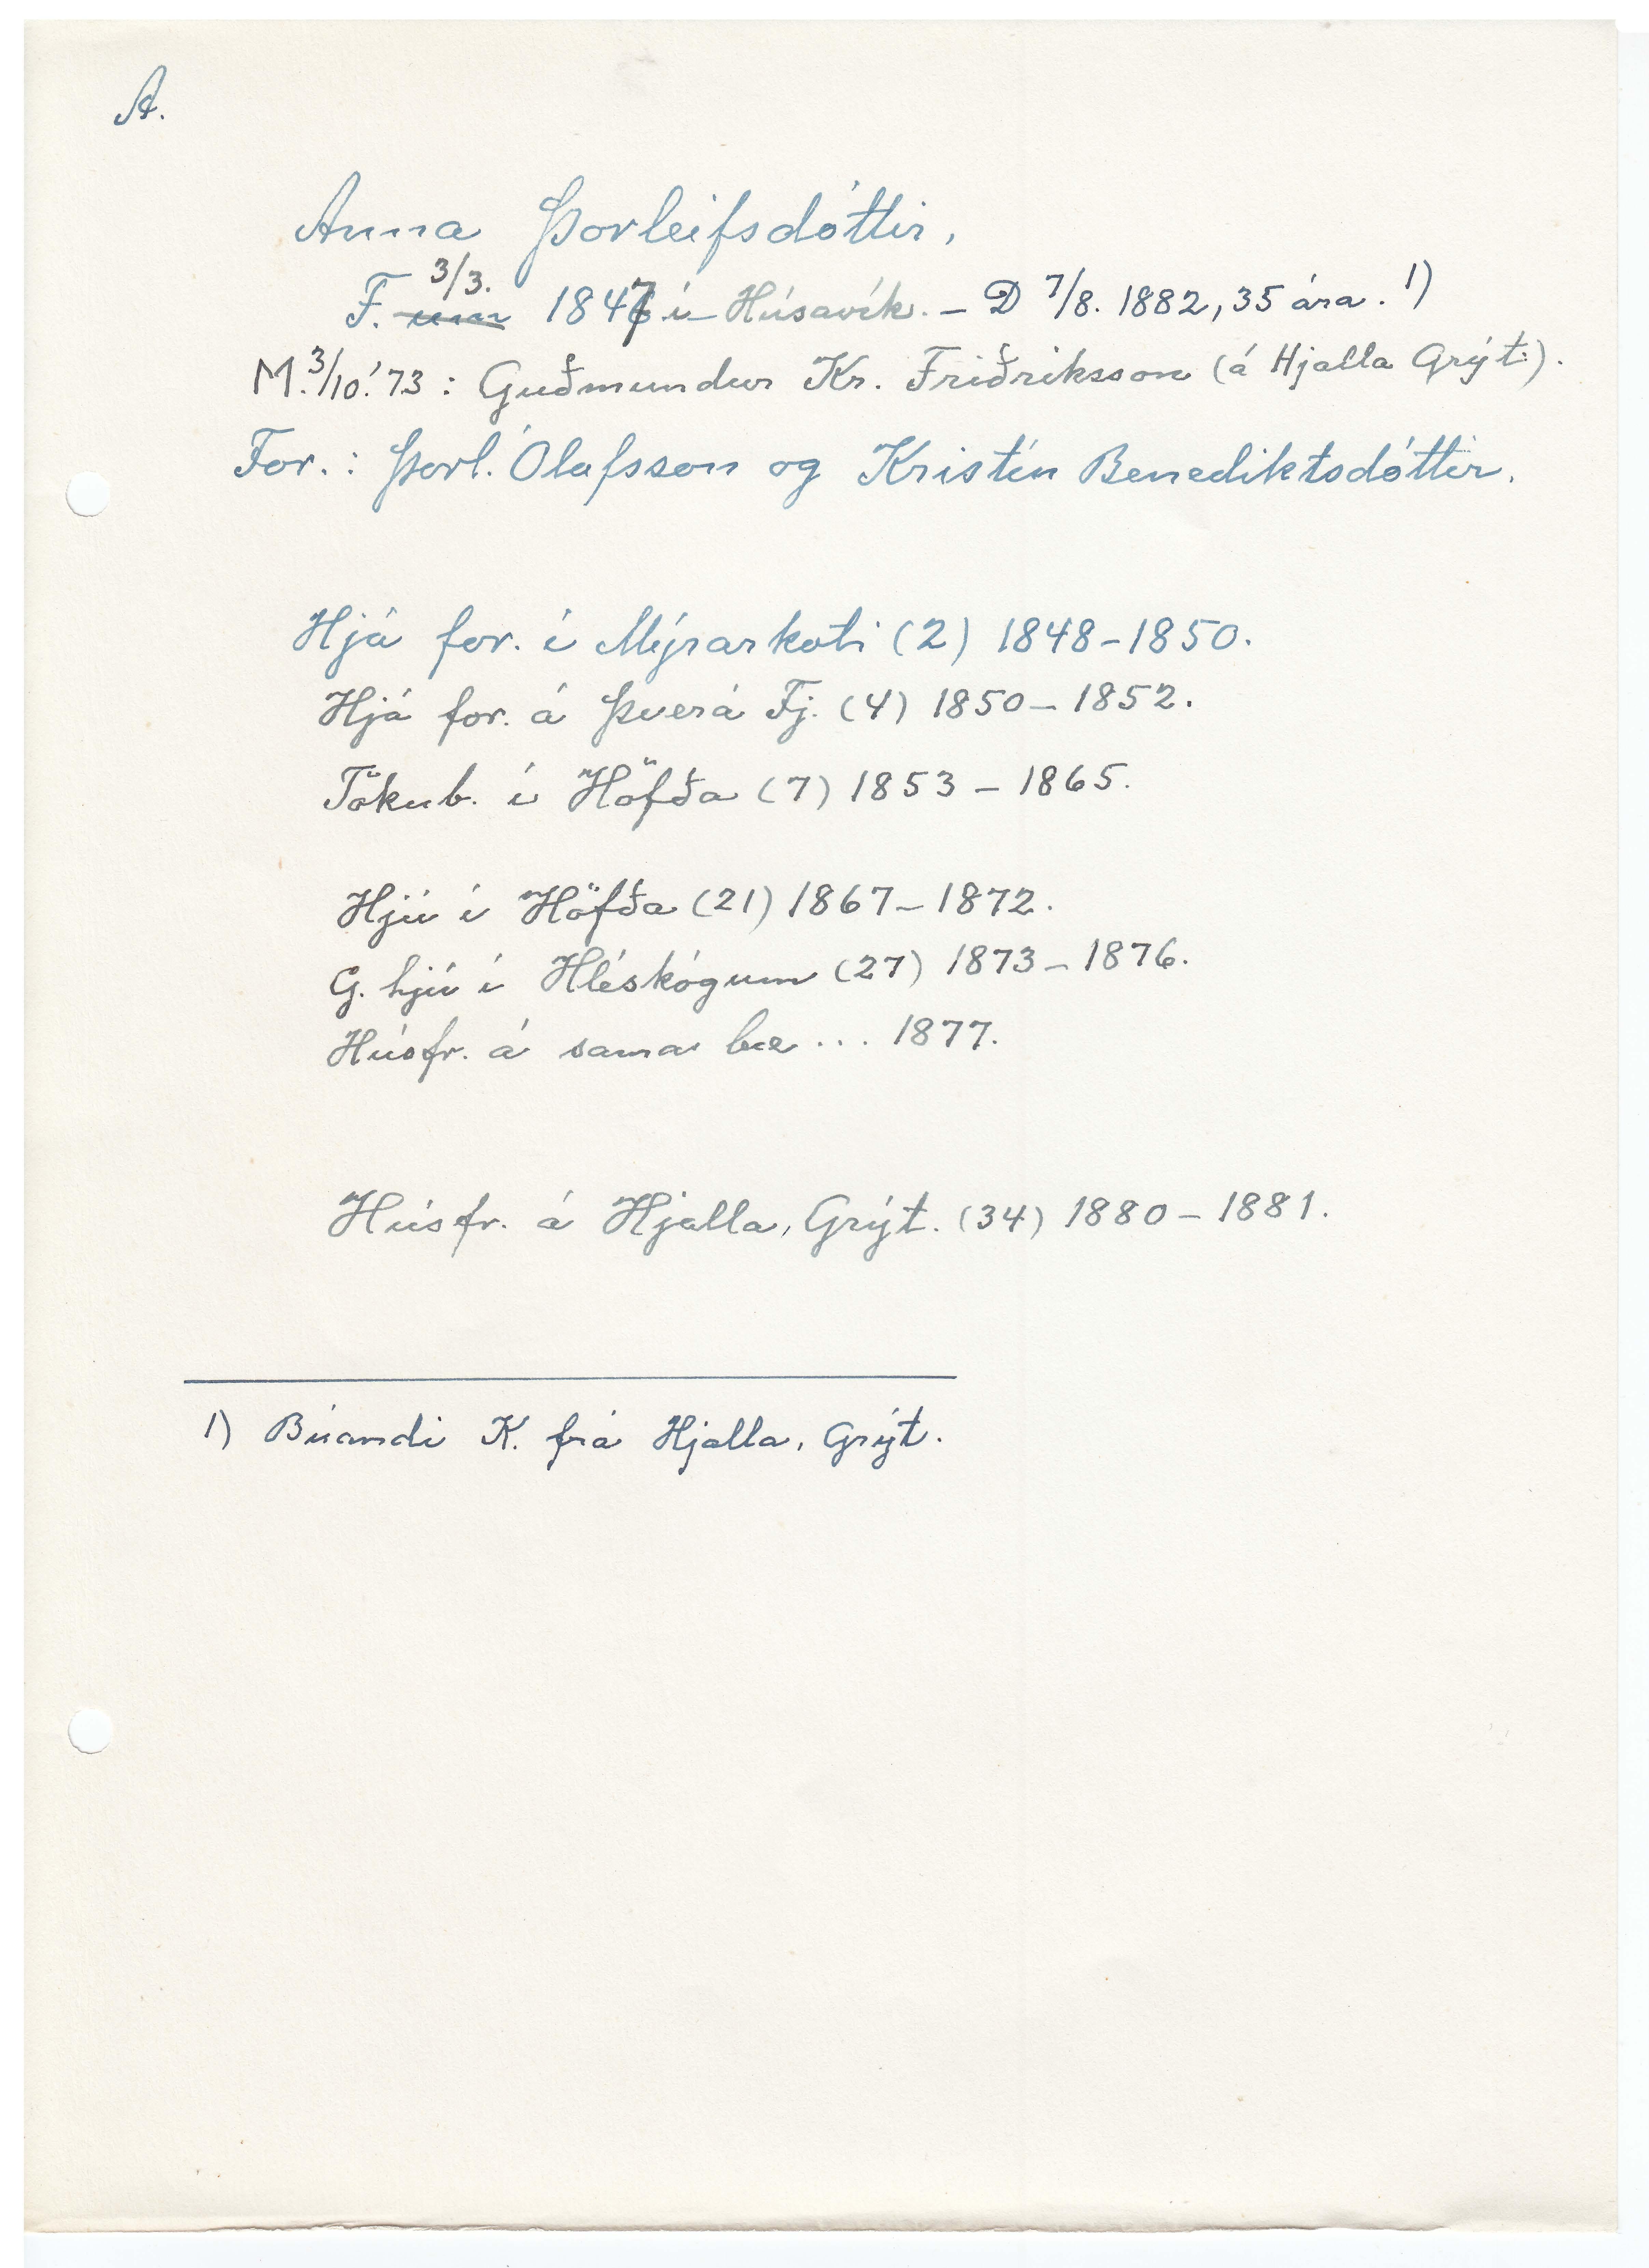 A.
Anna Þorleifsdóttir,
3/3.
F. um 1847 í Húsavík. – D 7/8. 1882, 35 ára. 1)
M. 3/10.' 73 : Guðmundur Kr. Friðriksson (á Hjalla Grýt.).
For. : Þorl. Ólafsson og Kristín Benediktsdóttir.
Hjá for. í Mýrarkoti (2) 1848–1850.
Hjá for. á Þverá Fj. (4) 1850–1852.
Tökub. í Höfða (7) 1853–1865.
Hjú í Höfða (21) 1867–1872.
G. hjú í Hléskógum (27) 1873–1876.
Húsfr. á sama bæ ... 1877.
Húsfr. á Hjalla, Grýt. (34) 1880–1881.
1) Búandi K. frá Hjalla, Grýt.